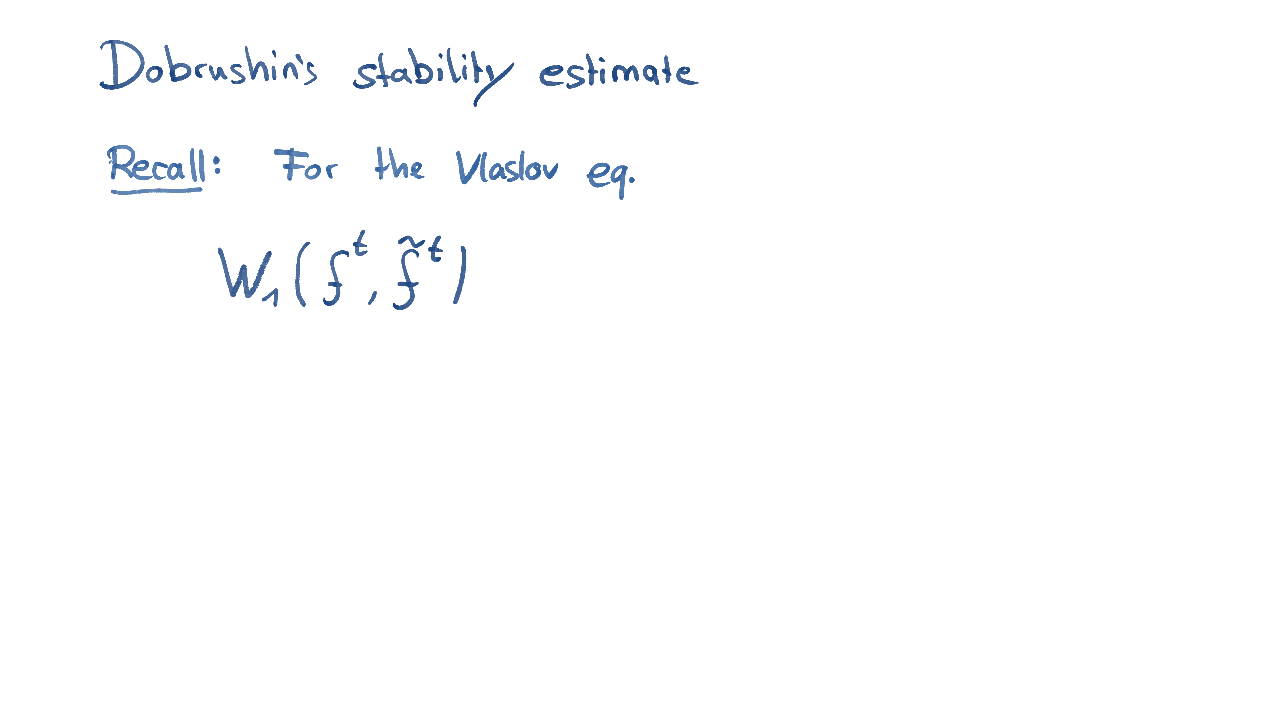 Dobrushin's stability estimate
Recall: For the Vlaslov eq.
W₁(fᵗ, f̃ᵗ)